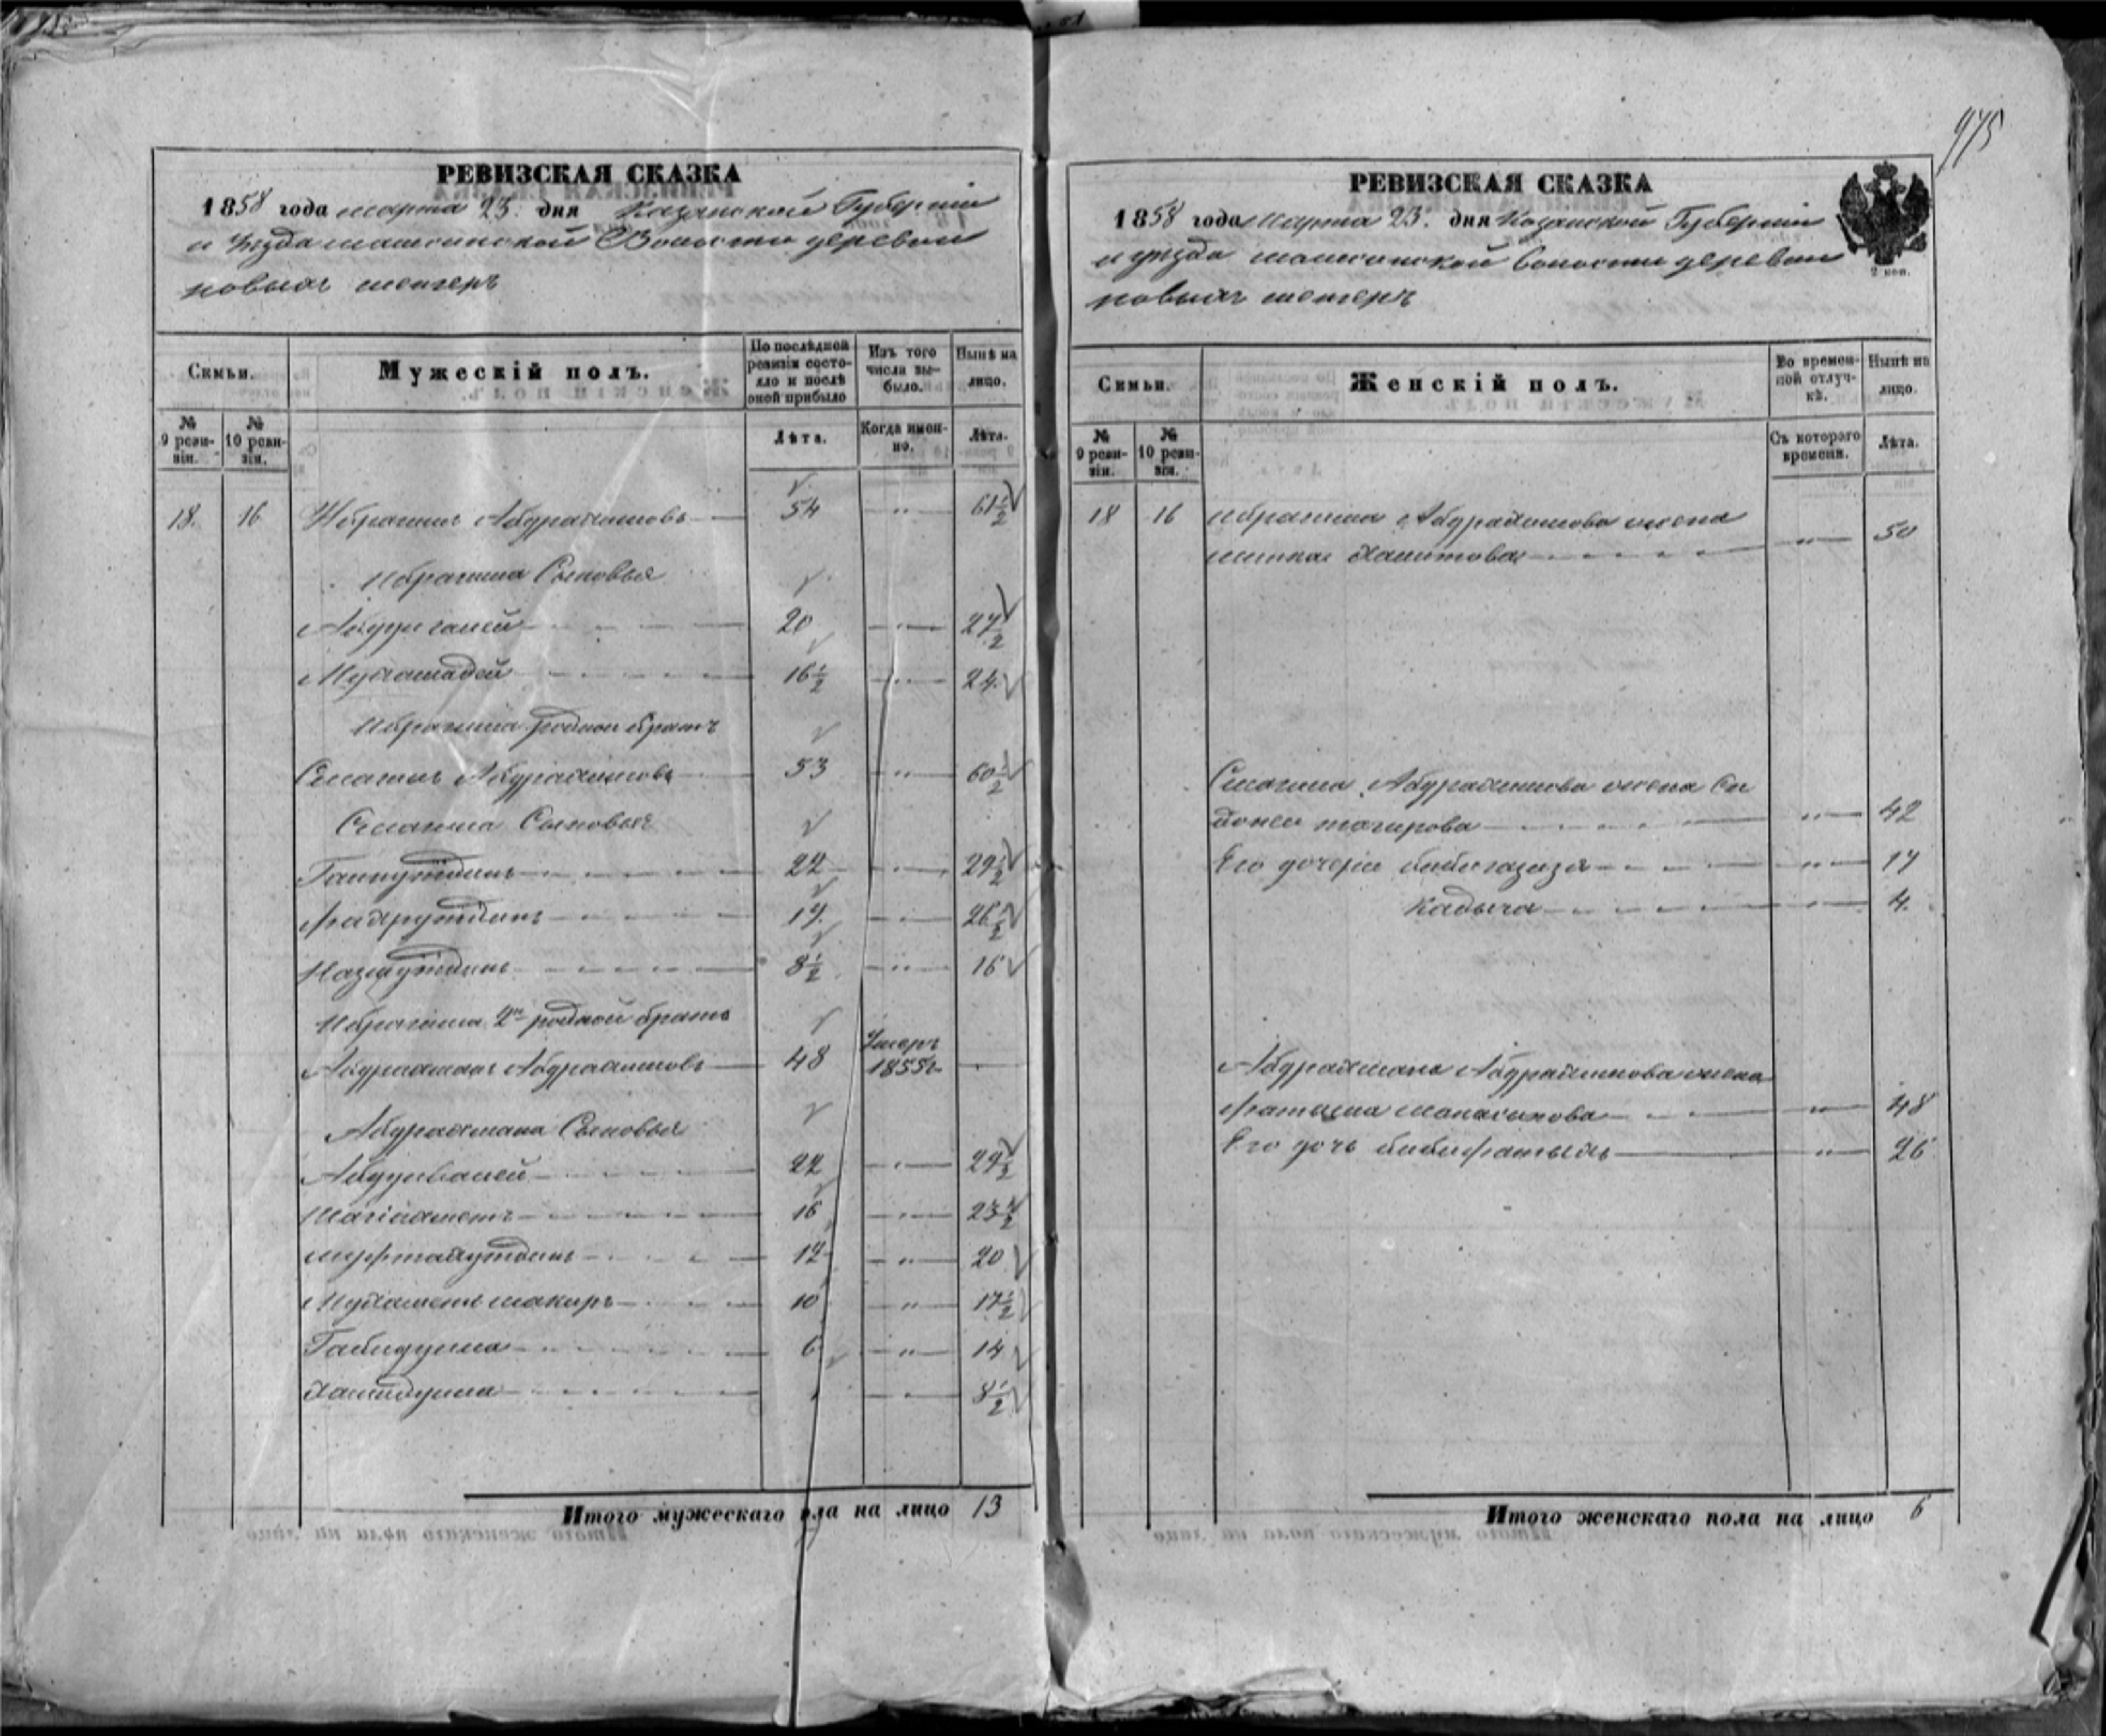 975
РЕВИЗСКАЯ СКАЗКА
1858 года марта 23. дня Казанской Губерніи
и уезда машинской Волости деревни
новыхъ менгеръ
Семьи.
Мужескій полъ.
По послѣдней ревизіи состояло и послѣ оной прибыло
Изъ того числа выбыло.
Нынѣ на лицо.
№ 9 ревизіи.
№ 10 ревизіи.
Лѣта.
Когда именно.
Лѣта.
18. 16 Ибрагимъ Абдрахимовъ 54 " 61½
Ибрагима Сыновья
Абдулганей 20 " 27½
Мухамадей 16½ " 24.
Ибрагима родной братъ
Смагилъ Абдрахимовъ 53 " 60½
Смагила Сыновья
Гайнутдинъ 22 " 29½
Фахрутдинъ 19. " 26½
Назмутдинъ 8½ " 16
Ибрагима 2й родной братъ
Абдрахманъ Абдрахимовъ 48 Умеръ 1855г
Абдрахмана Сыновья
Абдулвалей 22 " 29½
Шагіахметъ 16 " 23½
Мифтахутдинъ 12 " 20
Мухаметшакиръ 10 " 17½
Габидулла 6 " 14
Хамидулла " 8½
Итого мужескаго пла на лицо 13
РЕВИЗСКАЯ СКАЗКА
1858 года Марта 23. дня Казанской Губерніи
и уезда машинской волости деревни
новыхъ менгеръ
2 коп.
Семьи.
Женскій полъ.
Во временной отлучкѣ.
Нынѣ на лицо.
№ 9 ревизіи.
№ 10 ревизіи.
Съ котораго времени.
Лѣта.
18 16 Ибрагима Абдрахимова жена
Хамитова " 50
Смагила Абдрахимова жена
тагирова " 42
Его дочери бибигазиза " 17
Кадыча " 4.
Абдрахмана Абдрахимова жена
Фатыма " 48
Его дочь бибифатыйха " 26
Итого женскаго пола на лицо 6